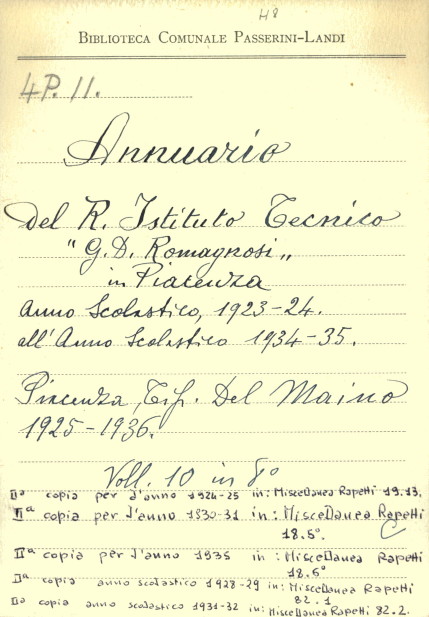 H8
BIBLIOTECA COMUNALE PASSERINI-LANDI
4P. 11.
Annuario
del R. Istituto Tecnico
"G.D. Romagnosi„
in Piacenza
Anno Scolastico, 1923-24.
all'Anno Scolastico 1934-35.
Piacenza, Tip. Del Maino
1925-1936.
Voll. 10 in 8°
IIª copia per l'anno 1924-25 in: Miscellanea Rapetti 19.13.
IIª copia per l'anno 1930-31 in: Miscellanea Rapetti C
18.5°.
IIª copia per l'anno 1935 in: Miscellanea Rapetti
18.6°
IIª copia anno scolastico 1928-29 in: Miscellanea Rapetti
82.1
IIª copia anno scolastico 1931-32 in: Miscellanea Rapetti 82.2.